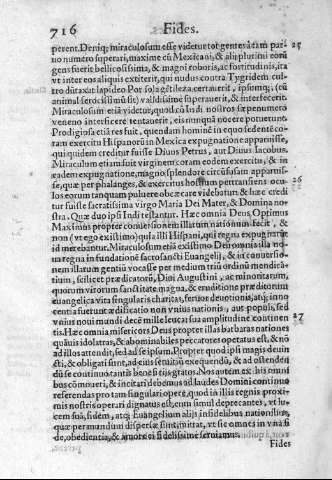 716 Fides.
perent. Deniq; miraculosum esse videtur tot gentes à tàm par- 25
uo numero superari, maxime cũ Mexicani, & alij plurimi eorũ
gens fuerit bellicosissima, & magni roboris, ac fortitudinis, ita
vt inter eos aliquis extiterit, qui nudus contra Tygridem cul-
tro
animal ferocissimũ sit) validissime superauerit, & interfecerit.
Miraculosum etiã videtur, quod cũ Indi nostros sæpe numero
veneno interficere tentauerit, eis nunquã nocere potuerint.
Prodigiosa etiã res fuit, quendam hominẽ in equo sedentẽ co-
ram exercitu Hispanorũ in Mexica expugnatione apparuisse,
qui quidem creditur fuisse Diuus Petrus, aut Diuus Iacobus.
Miraculum etiam fuit virginem coram eodem exercitu, & in
eadem expugnatione, magno splendore circũfusam apparuis-
se, quæ per phalanges, & exercitus hostium pertransiens ocu- 26
los eorum tanquam puluere obcæcare videbatur, & hæc credi
tur fuisse sacratissima virgo Maria Dei Mater, & Domina no-
stra. Quæ duo ipsi Indi testantur. Hæc omnia Deus Optimus
Maximus propter conuersionem illarum nationum fecit, &
non (vt ego existimo) quia illi Hispani, qui regna expugnarũt
id merebantur. Miraculosum etiã existimo Deum omnia illa no-
ua regna in fundatione sacrosancti Euangelij, & in conuersio-
nem illarum gentiũ vocasse per medium triũ ordinũ mendicã-
tium, scilicet prædicatorũ, Diui Augustini, ac minoritarum,
quorum virorum sanctitate magna, & eruditione prædicationũ
euangelica vita singularis charitas, feruor deuotionis, atq; inno
centia fuerunt ædificatio non vnius nationis, aut populi, sed
vnius noui mundi decẽ mille leucas sua amplitudine continen
tis. Hæc omnia misericors Deus propter illas barbaras nationes 27
quãuis idolatras, & abominabiles peccatores operatus est, & nõ
ad illos attendit, sed ad se ipsum. Propter quod ipsi magis deuin
cti, & obligati sunt, ad eius seruitiũ exequendũ, & ad ostenden
dũ se continuo tantis beneficijs gratos. Nos autem ex his omni
bus cõmoueri, & incitari debemus ad laudes Domini continuo
referendas pro tam singulari opere, quod in illis regnis proxi-
mis nostris operari dignatus est, eum simul deprecantes, vt lu-
cem suã, fidem, atq; Euangelium alijs infidelibus nationibus,
quæ per mundum dispersæ sunt, impertiat, vt sic omnes in vna fi
de, obedientia, & amore ei fidelissime seruiamus.
Fides